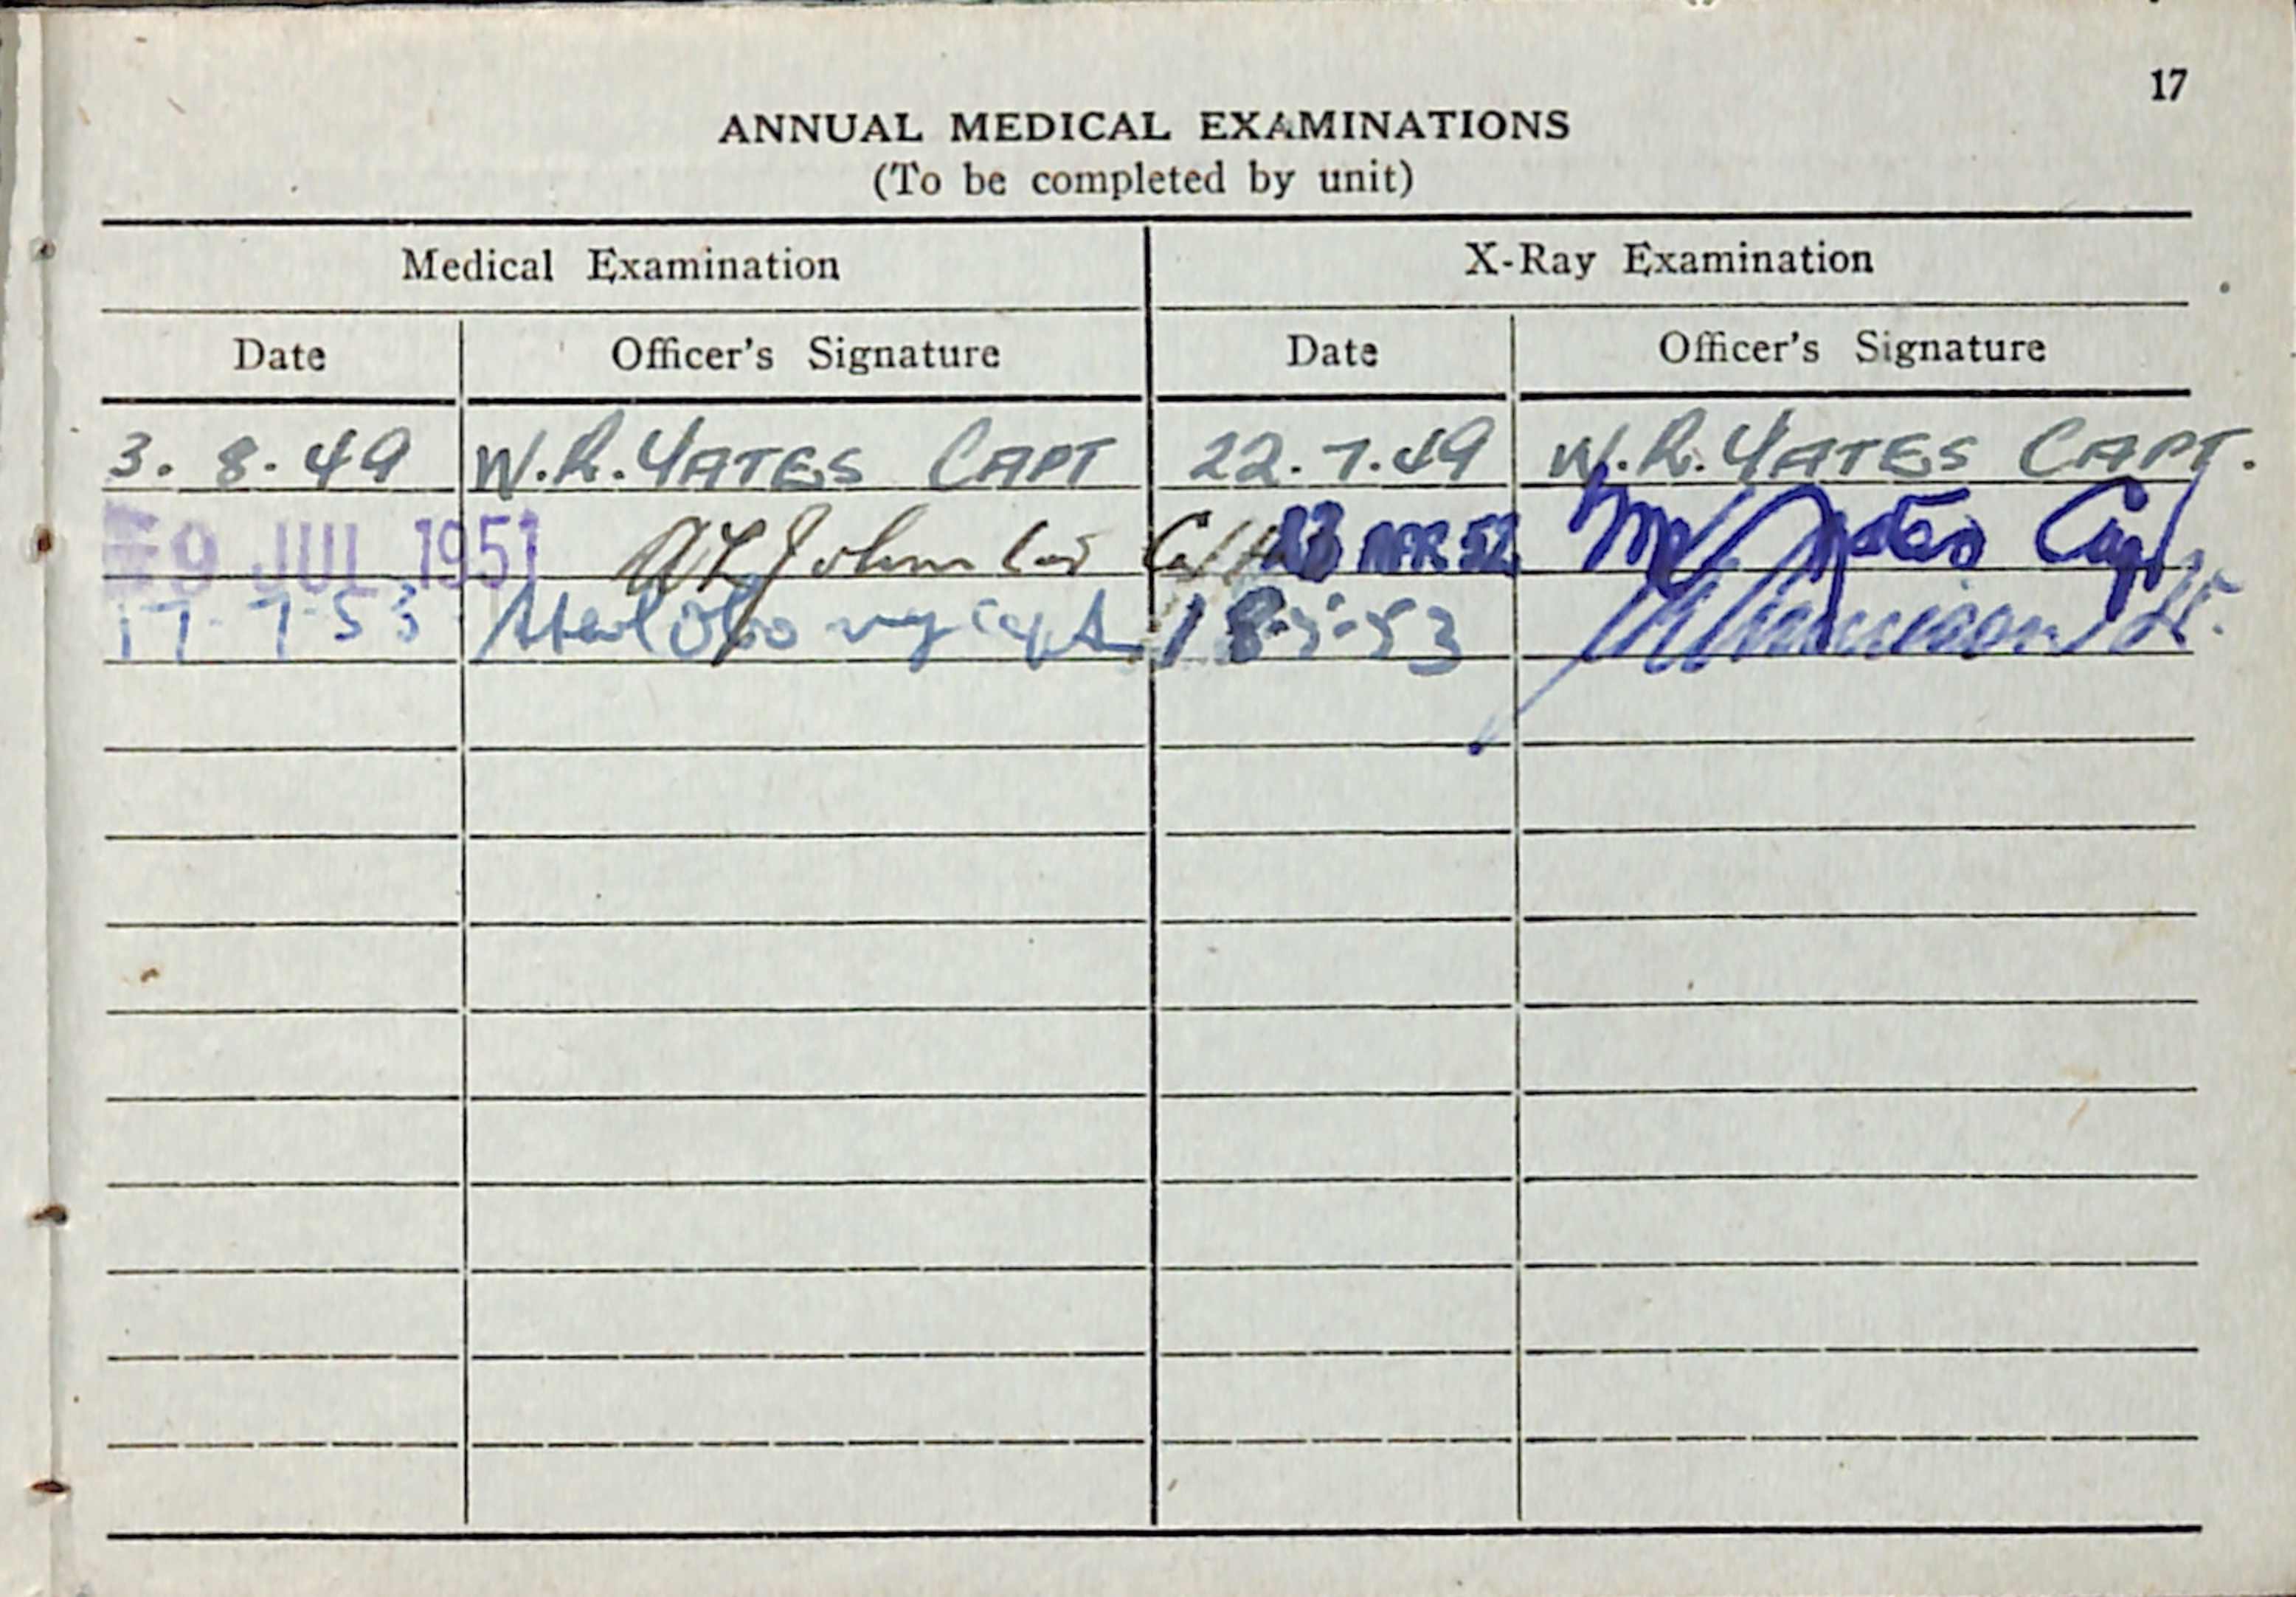 17
ANNUAL MEDICAL EXAMINATIONS
(To be completed by unit)
Medical Examination X-Ray Examination
Date Officer's Signature Date Officer's Signature
3. 8. 49 W.R. YATES CAPT 22.7.49 W.R. YATES CAPT.
9 JUL 1951 Capt
17-7-53 capt 18-5-53 Lt.